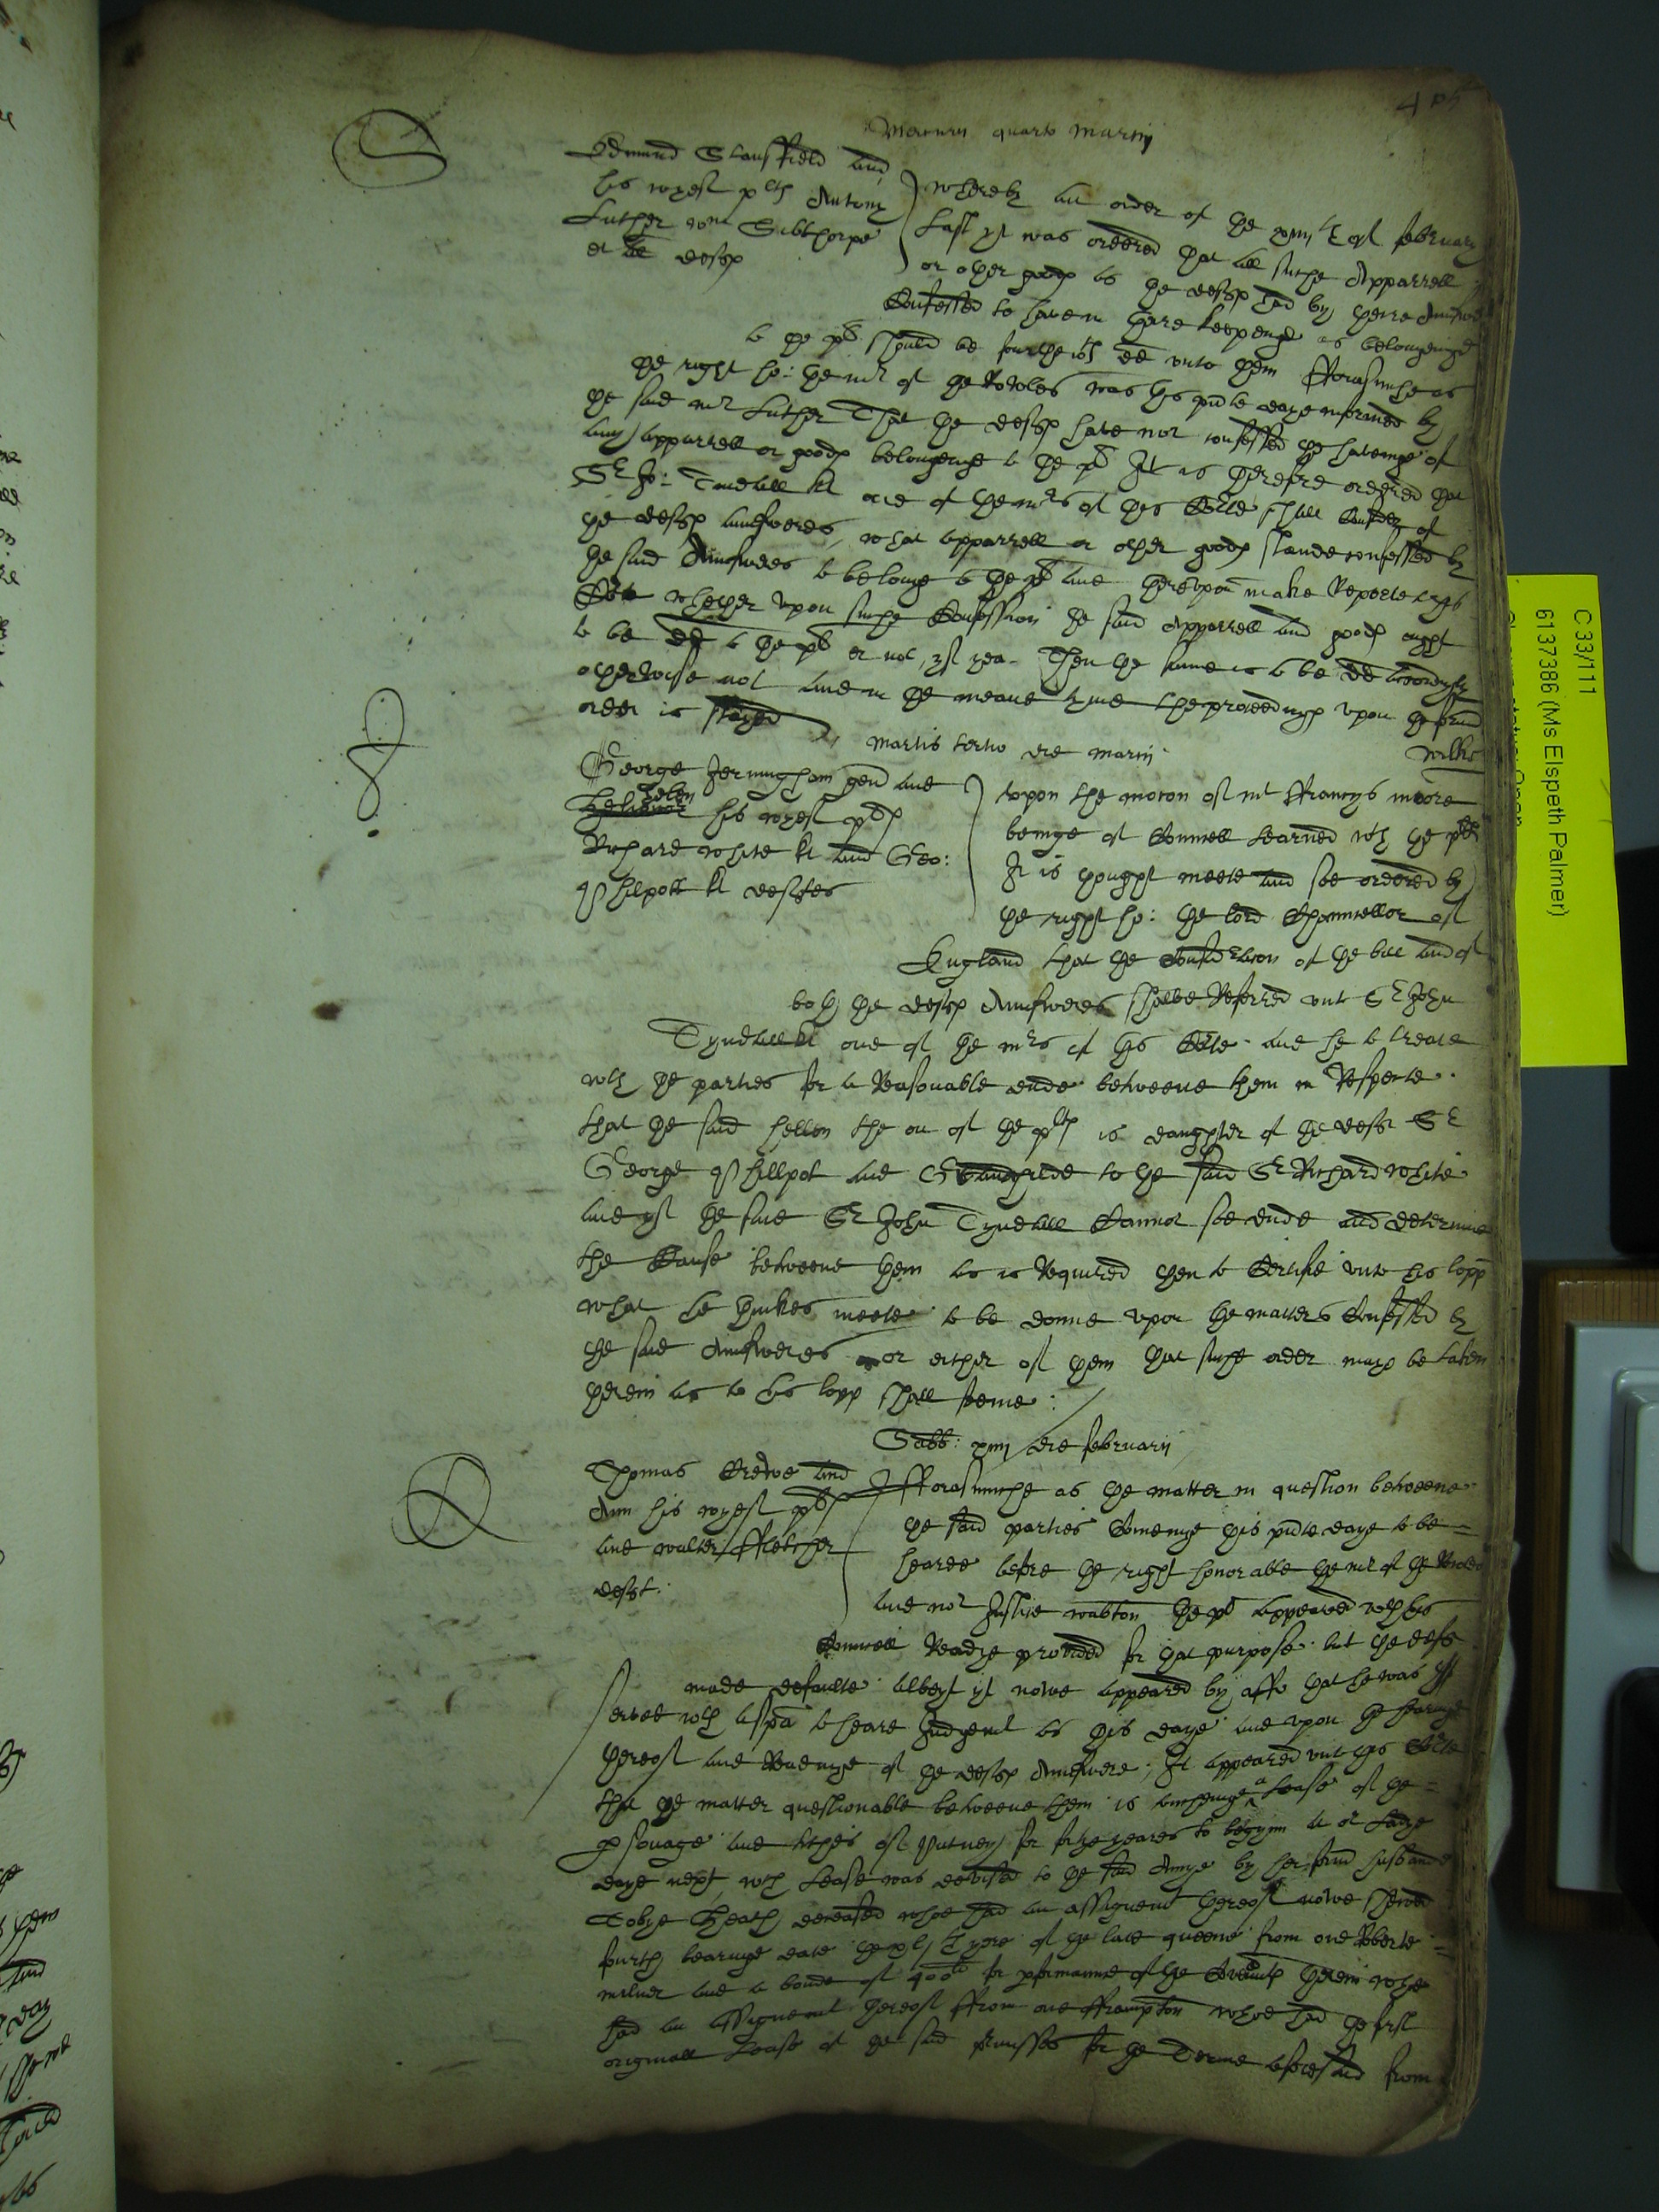 Mercurii quarto Martij
Edmund Stansfield and
his wyef plts Antony
Luther Wm Sibthorpe
et al defts
whereby an order of the xviijth of february
Last yt was ordered that all suche Apparrell
or other goods as the defts had by theire Answere
Confessed to have in there keepenge as belonginge
to the plts should be fourthwth dd unto them fforasmuche as
the right ho: the mr of the Rowles was this pnte daye informed by
the said mr Luther That the defts have not confessed the havenge of
any apparrell or goods belongenge to the plts It is therefore ordered that
Sr Jo: Tindall kt one of the mrs of this Corte shall Consider of
the defts answeres, what apparrell or other goods stande confessed by
the said Answeres to belonge to the plts and thereupon make Reporte to this
Corte whether upon suche Confession the said Apparrell and goods ought
to be dd to the plts or not, yf yea. Then the same is to be dd accordingly
otherwise not and in the meane tyme the proceedings upon the said
order is stayed
Martis tertio die Martij
George Jerningham gen and
Helen his wyef plts
Richard White kt and Geo:
Philpott kt deftes
Upon the motion of mr ffrancys moore
beinge of Councell Learned wth the plts
It is thought meete and soe ordered by
the right ho: the lord Chauncellor of
England that the Consideracon of the bill and of
both the defts Answeres shalbe Referred unto Sr John
Tyndall kt one of the mrs of this Corte and he to treate
wth the parties for a Reasonable ende betweene them in Respecte
that the said Hellen the on of the plts is daughter of the deft Sr
George Phillpot and Grandchilde to the said Sr Richard White
and yf the said Sr John Tyndall Cannot soe ende and determine
the Cause betweene them as is Required then to Certifie unto his lopp
what he thinkes meete to be donne upon the matters Confessed by
the said Answeres or either of them that suche order maye be taken
therein as to his lopp shall seeme:
Sabb: xiiij die februarij
Thomas Crewe and
Ann his wyef plts
and Walter ffletcher
deft:
fforasmuche as the matter in question betweene
the said parties Comenge this pnte daye to be
heard before the right honorable the mr of the Rolls
and mr Justice Walton the plt appeared wth his
Councell Readye provided for that purpose but the deft
made defaulte albeyt yt nowe appeared by afft that he was
served wth a spa to heare Judgemt as this daye and upon the hearinge
thereof and Readinge of the defts Answere; It appeared unto this Corte
that the matter questionable betweene them is touchenge a Lease of the
psonage and tithes of Putney for yeares to begynn at or Ladye
daye next, wch Lease was devised to the said Anne by her said husband
Tobye Heath deceased whoe had an assignemt thereof nowe shewed
fourth bearinge date the yere of the late queene from one Roberte
milner and a bonde of 400li for pformance of the Covents therein whoe
had an assignemt thereof from one Frampton whoe had the first
originall Lease of the said premisses for the Terme aforesaid from
C 33/111
6137386 (Ms Elspeth Palmer)